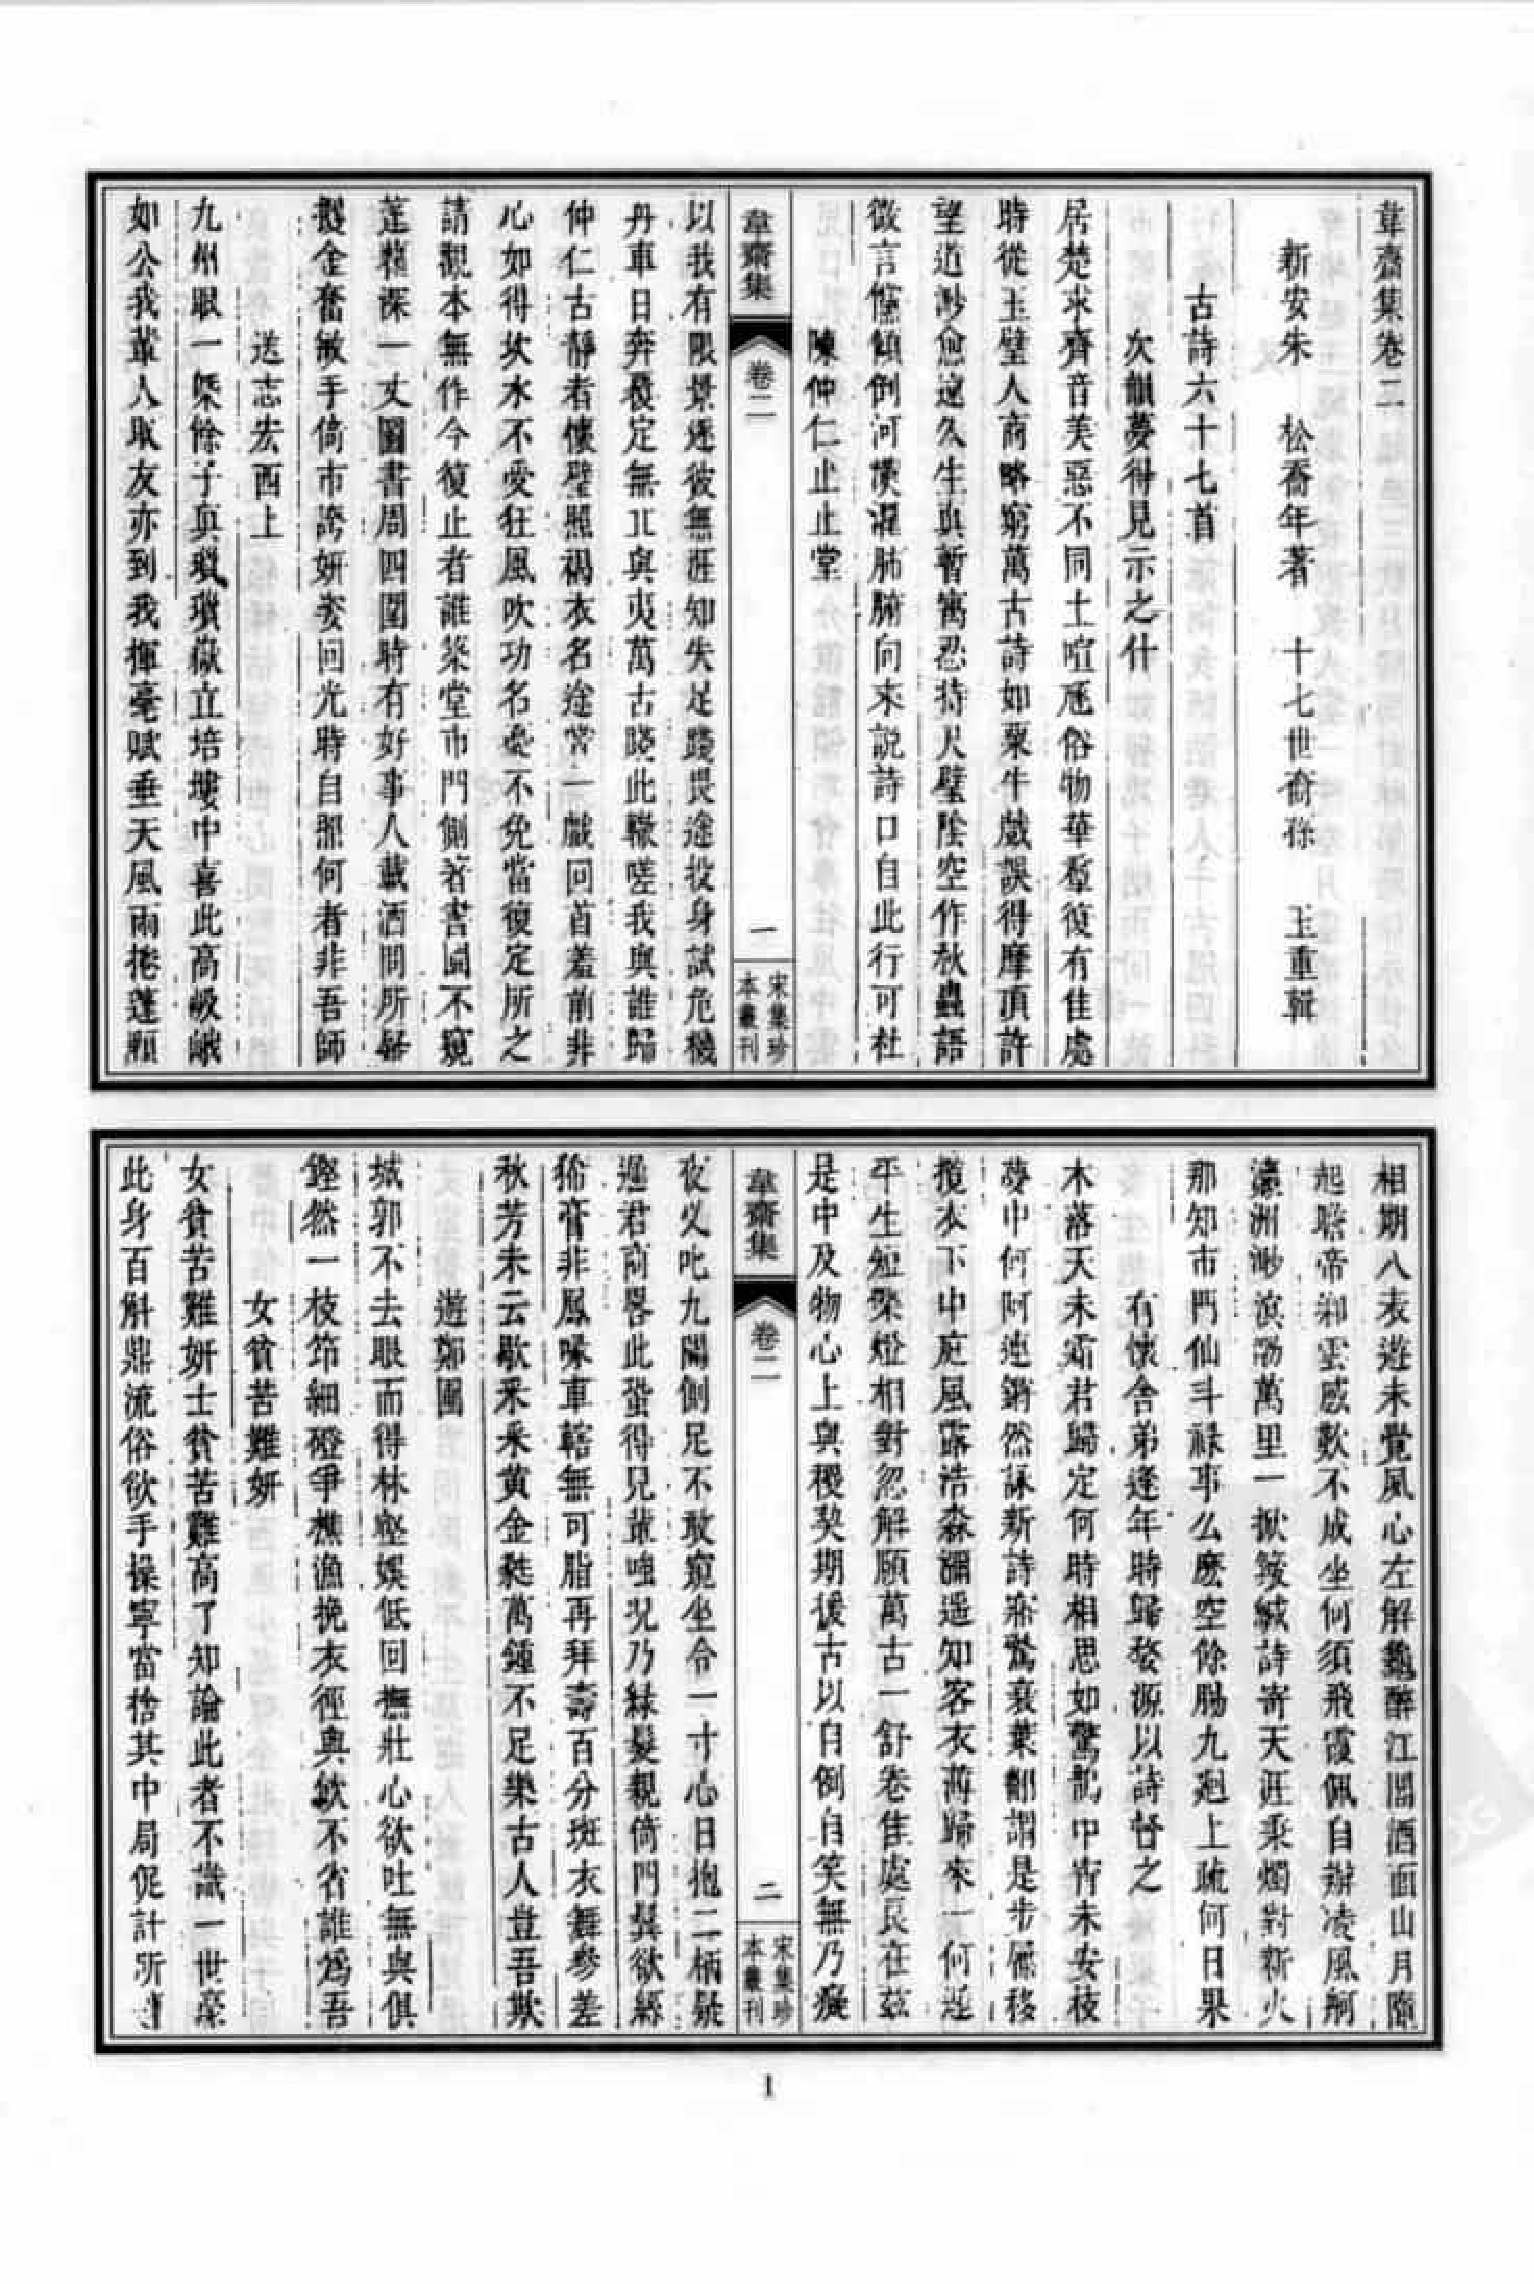 韋齋集卷二
新安朱 松喬年著 十七世裔孫 玉重輯
古詩六十七首
次韻夢得見示之什
居楚求齊音美惡不同土喧卮俗物華羣復有佳處
時從玉璧人商略窮萬古詩如棗牛戲誤得摩頂許
望道渺愈遠久生真暫寓忍持尺璧陰空作秋蟲語
微言儻傾倒河漢濯肺腑向來說詩口自此行可杜
陳仲仁止止堂
韋齋集
卷二
一
宋集珍
本叢刊
以我有限景逐彼無涯知失足踐畏途投身試危機
丹車日奔覆定無丌與夷萬古晱此轍嗟我與誰歸
仲仁古靜者懷璧照褐衣名途常一戲回首羞前非
心如得坎水不受狂風吹功名憂不免當復定所之
請觀本無作今復止者誰築堂市門側著書園不窺
蓬藋深一丈圖書周四圍時有好事人載酒問所歸
攫金奮敏手倚市誇妍姿回光時自照何者非吾師
送志宏西上
九州眼一槩餘子真瑣瑣嶽立培塿中喜此高岌峨
如公我輩人取友亦到我揮毫賦垂天風雨捲蓬顆
相期八表遊未覺風心左解龜醉江閣酒面山月墮
起瞻帝鄉雲感歎不成坐何須飛霞佩自辦凌風舸
瀛洲渺濱渤萬里一掀簸緘詩寄天涯秉燭對新火
那知市門仙斗祿事么麽空餘腸九廻上疏何日果
有懷舍弟逢年時歸婺源以詩督之
木落天未霜君歸定何時相思如驚鵲中宵未安枝
夢中何阿連鏘然詠新詩寤驚衰葉翻謂是步屧移
攬衣下中庭風露浩淼瀰遥知客衣薄歸來一何遲
平生短檠燈相對忽解頤萬古一舒卷佳處良在茲
是中及物心上與稷契期援古以自例自笑無乃癡
韋齋集
卷二
二
宋集珍
本叢刊
夜乂叱九關側足不敢窺坐令一寸心日抱二柄疑
過君商畧此蛩得兄輩嗤況乃綠髮親倚門鬂欲絲
狶膏非鳳喙車轄無可脂再拜壽百分斑衣舞參差
秋芳未云歇釆釆黃金蕤萬鍾不足樂古人豈吾欺
遊鄭圃
城郭不去眼而得林壑娛低回撫壯心欲吐無與俱
鏗然一枝筇細磴爭樵漁挽衣徑與飲不省誰爲吾
女貧苦難妍
女貧苦難妍士貧苦難高了知論此者不識一世豪
此身百斛鼎流俗欲手操寧當捨其中局促計所
1